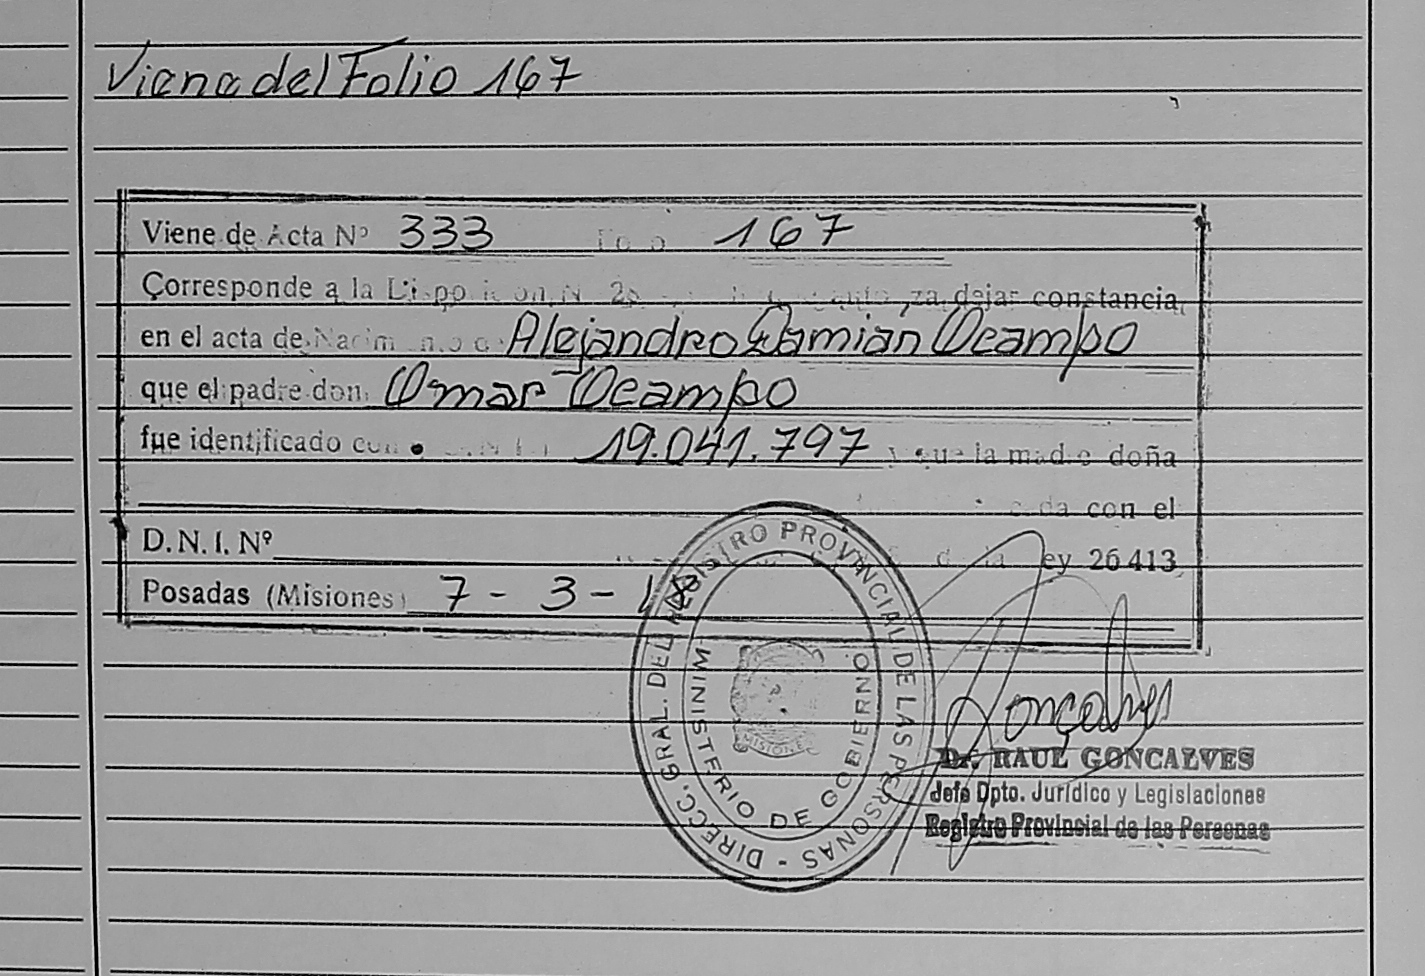 Viene del Folio 167
Viene de Acta Nº 333 Folio 167
Corresponde a la dejar constancia
en el acta de Alejandro Damian Ocampo
que el padre don Omar Ocampo
fue identificado con 19.041.797 y que la madre doña
con el
D.N.I. Nº ley 26413
Posadas (Misiones) 7 - 3 -
DIRECC. GRAL. DEL REGISTRO PROVINCIAL DE LAS PERSONAS -
MINISTERIO DE GOBIERNO
MISIONES
Gonçalves
Dr. RAUL GONCALVES
Jefe Dpto. Jurídico y Legislaciones
Registro Provincial de las Personas